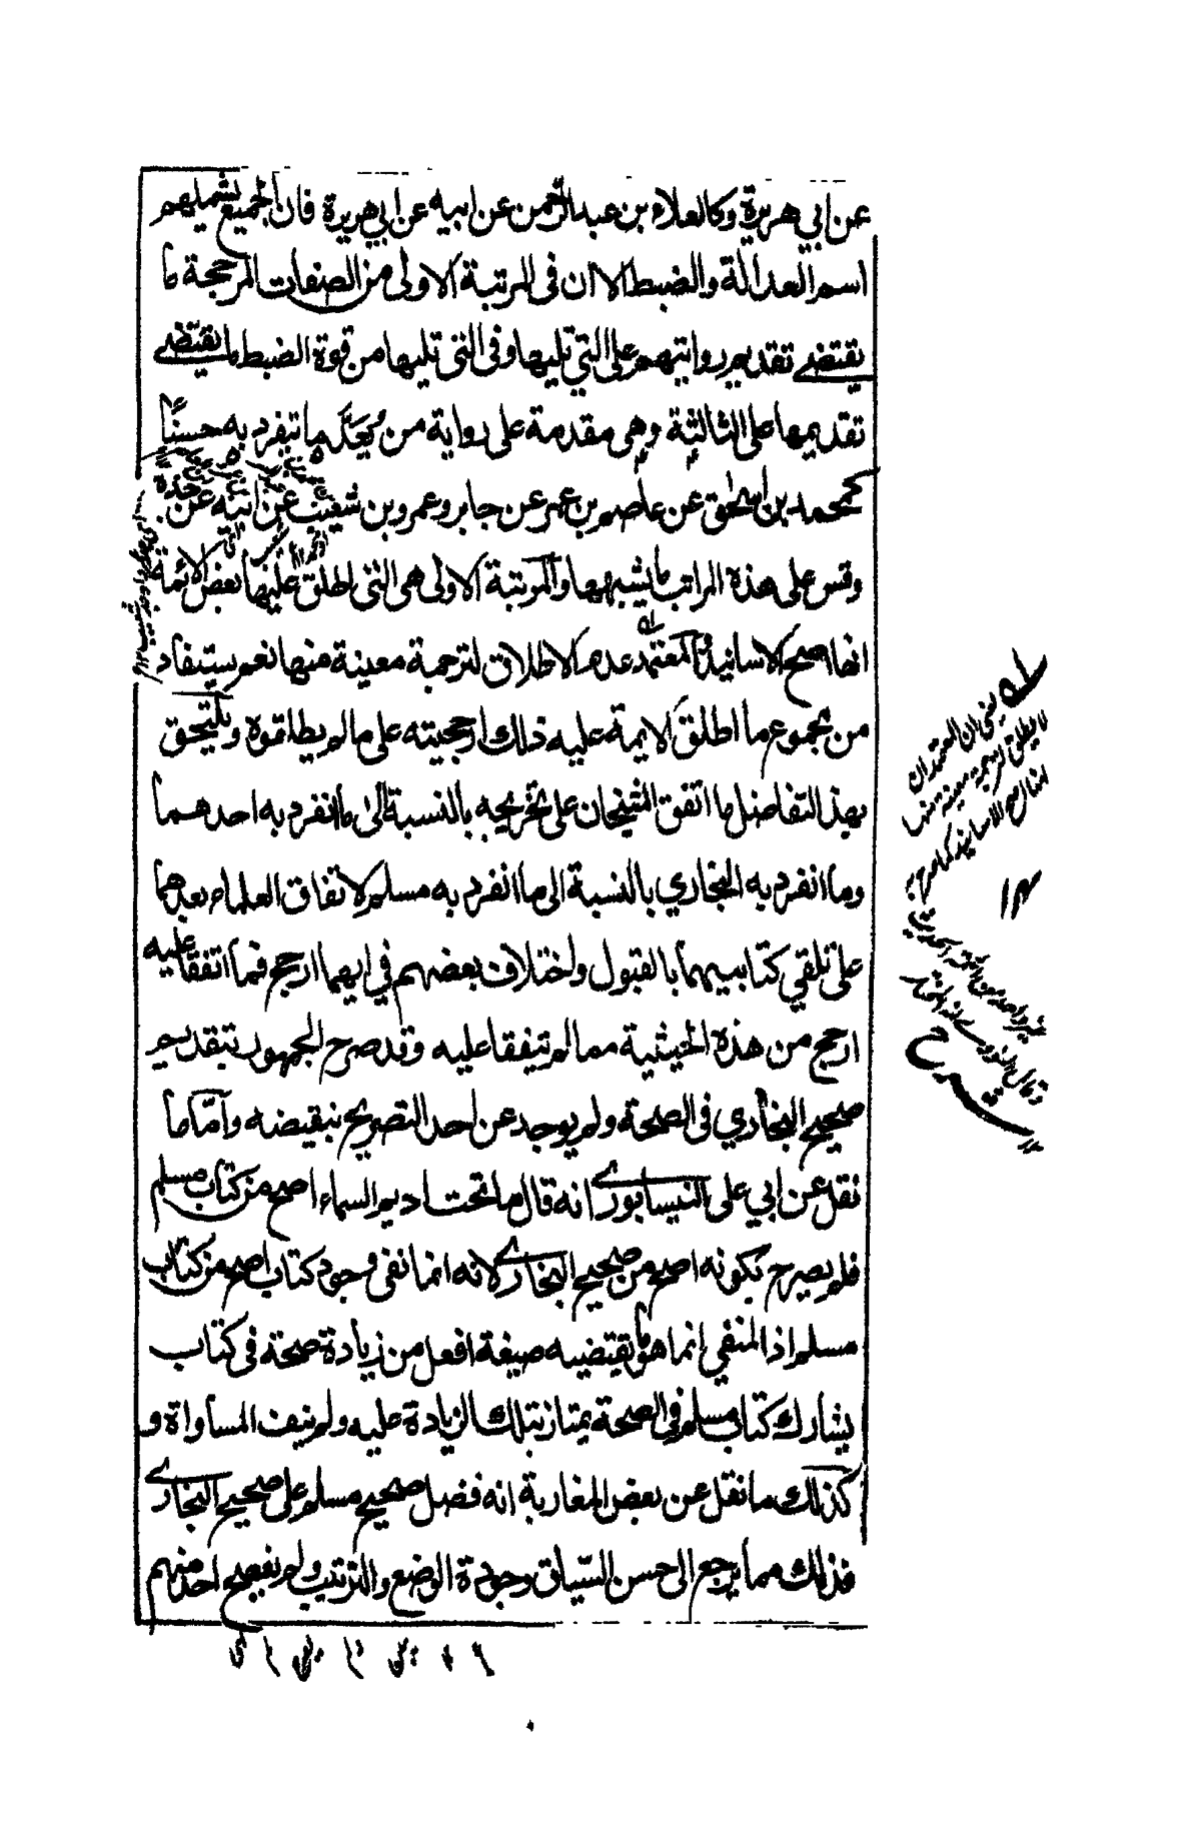 عن ابي هريرة وكالعلاء بن عبد الرحمن عن ابيه عن ابي هريرة فان الجميع يشملهم
اسم العدالة والضبط الا ان فى المرتبة الاولى من الصفات المرجحة ما
يقتضے تقديم روايتهم على التي تليها وفى التى تليها من قوة الضبط ما يقتضے
تقديمها على الثالثة وهى مقدمة على رواية من يُعَدُّ ما تيفرد به حسنًا
كمحمد بن اسحق عن عاصم بن عمر عن جابر وعمرو بن شعيب عن ابيه عن جده
وقس على هذه المراتب ما يشبهها والمرتبة الاولى هى التى اطلق عليها بعض الائمة
انها اصح الاسانيد والمعتمد عدم الاطلاق لترجمة معينة منها نعم يستفاد
من مجموع ما اطلق الايمة عليه ذلك ارجحيته على ما لم يطلقوه ويلتحق
بهذ التفاضل ما اتفق الشيخان على تخريجه بالنسبة الى ما انفرد به احدهما
وما انفرد به البخاري بالنسبة الى ما انفرد به مسلم لاتفاق العلماء بعدهما
على تلقي كتابيهما بالقبول واختلاف بعضهم في ايهما ارجح فما اتفقا عليه
ارجح من هذه الحيثية مما لم يتفقا عليه وقد صرح الجمهور بتقديم
صحيح البخاري فى الصحة ولم يوجد عن احد التصريح بنقيضه وأمّا ما
نقل عن ابي على النيسابورے انه قال ما تحت اديم السماء اصح من كتاب مسلم
فلم يصرح بكونه اصح من صحيح البخارے لانه انما نفى وجود كتاب اصح من كتاب
مسلم اذ المنفي انما هو ما يقتضيه صيغة افعل من زيادة صحة فى كتاب
يشارك كتاب مسلم فى الصحة يمتاز بتلك الزيادة عليه ولم ينف المساواة و
كذلك ما نقل عن بعض المغاربة انه فضل صحيح مسلم على صحيح البخارے
فذلك مما يرجع الى حسن السّياق وجودة الوضع والترتيب ولم يفصح احد منهم
يعني ان المعتمد ان
لا يطلق لترجمة معينة منها
انها اصح الاسانيد كما صرح به
غير واحد من ائمة الحديث
وقال النووے انه المختار
شرح